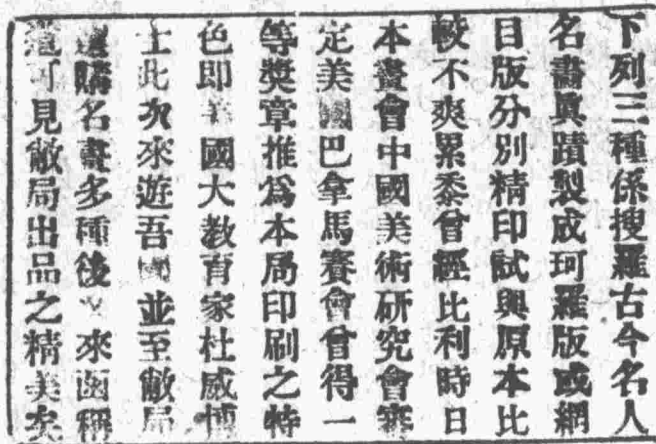 下列三種係搜羅古今名人
名畫眞蹟製成珂羅版或網
目版分別精印試與原本比
較不爽累黍曾經比利時日
本畫會中國美術研究會審
定美國巴拿馬賽會曾得一
等獎章推爲本局印刷之特
色即美國大教育家杜威博
士此次來遊吾國並至敝局
選購名畫多種後又來函稱
道可見敝局出品之精美矣